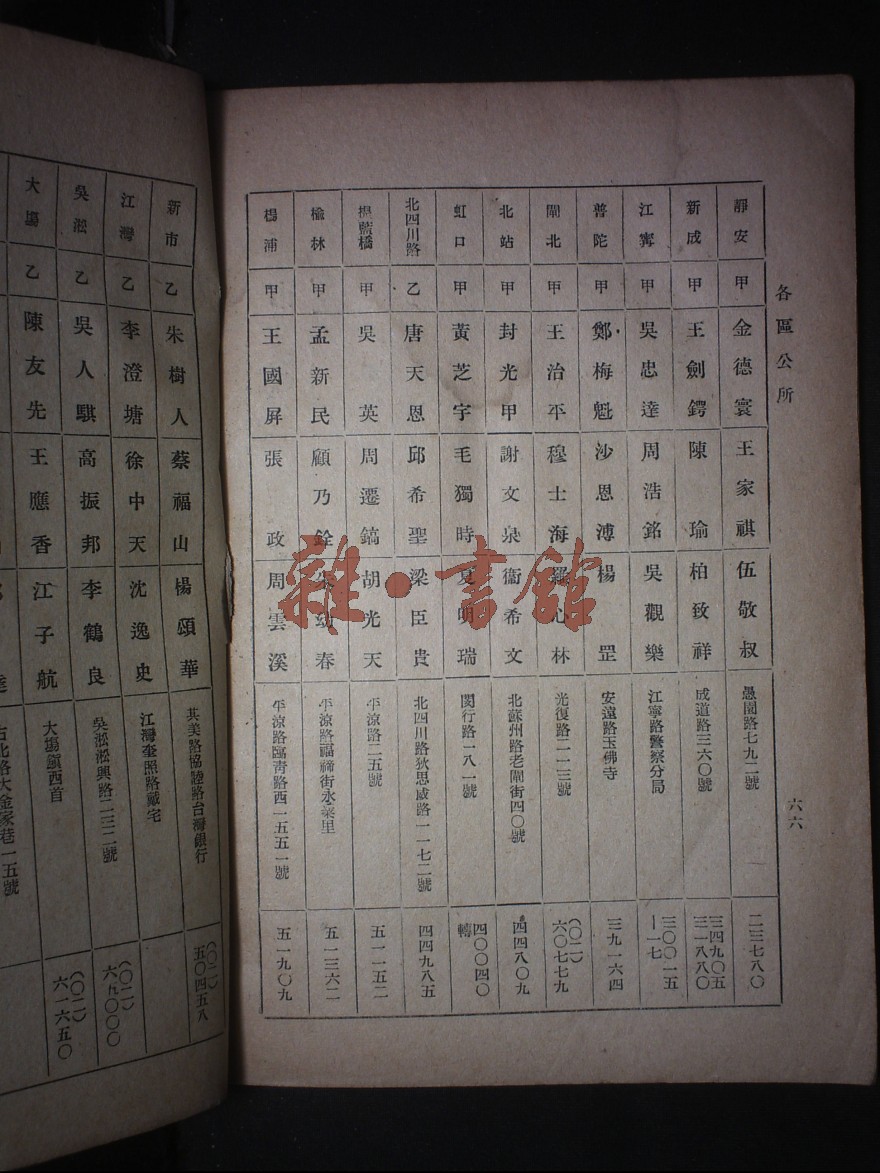 各區公所
六六
靜安 甲 金德寰 王家祺 伍敬叔 愚園路七九二號 二三七八〇
新成 甲 王劍鍔 陳瑜 柏致祥 成道路三六〇號 三四九〇五 三一八八〇
江寧 甲 吳忠達 周浩銘 吳觀樂 江寧路警察分局 三〇〇一五 —一七
普陀 甲 鄭梅魁 沙恩溥 楊罡 安遠路玉佛寺 三九一六四
閘北 甲 王治平 穆士海 羅心林 光復路二一三號 (〇二)六〇七七九
北站 甲 封光甲 謝文泉 衞希文 北蘇州路老閘街四〇號 四四八〇九
虹口 甲 黃芝宇 毛獨時 夏明瑞 閔行路一八一號 四〇〇四〇轉
北四川路 乙 唐天恩 邱希聖 梁臣貴 北四川路狄思威路一一七二號 四四九八五
提藍橋 甲 吳英 周遷鎬 胡光天 平涼路二五號 五一一五二
榆林 甲 孟新民 顧乃銓 幼春 平涼路福祿街永業里 五一三六二
楊浦 甲 王國屏 張政 周雲溪 平涼路臨靑路西一五五一號 五一九〇九
新市 乙 朱樹人 蔡福山 楊頌華 其美路協陸路台灣銀行 (〇二)五〇四五八
江灣 乙 李澄塘 徐中天 沈逸史 江灣奎照路戴宅
吳淞 乙 吳人騏 高振邦 李鶴良 吳淞淞興路二三二號 (〇二)六九〇〇〇
大場 乙 陳友先 王應香 江子航 大場鎭西首 (〇二)六一六五〇
古北路大金家巷一五號
雜·書館